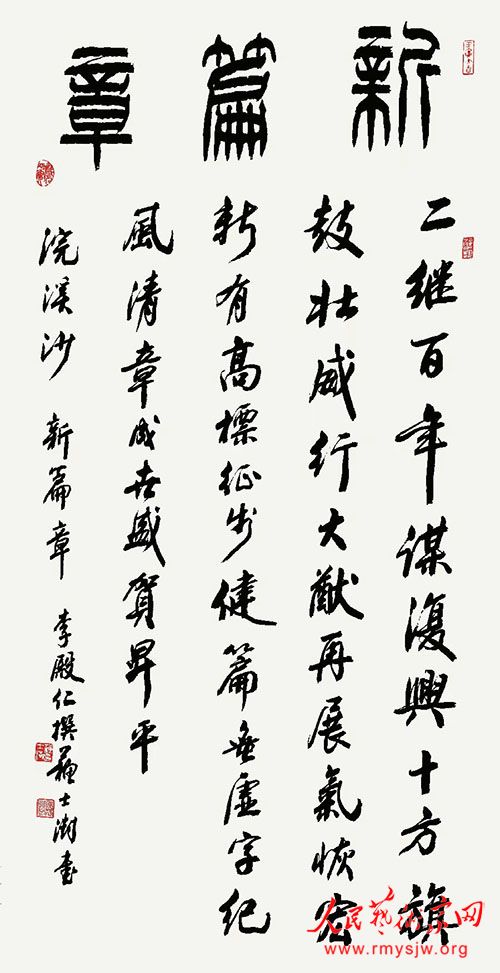 新篇章
二继百年谋復興十方旗
鼓壮威行大猷再展氣恢宏
新有高標征步健篇無虚字纪
風清章成世盛賀昇平
浣溪沙 新篇章 李殿仁撰 蘇士澍書
人民艺术家网
www.rmysjw.org